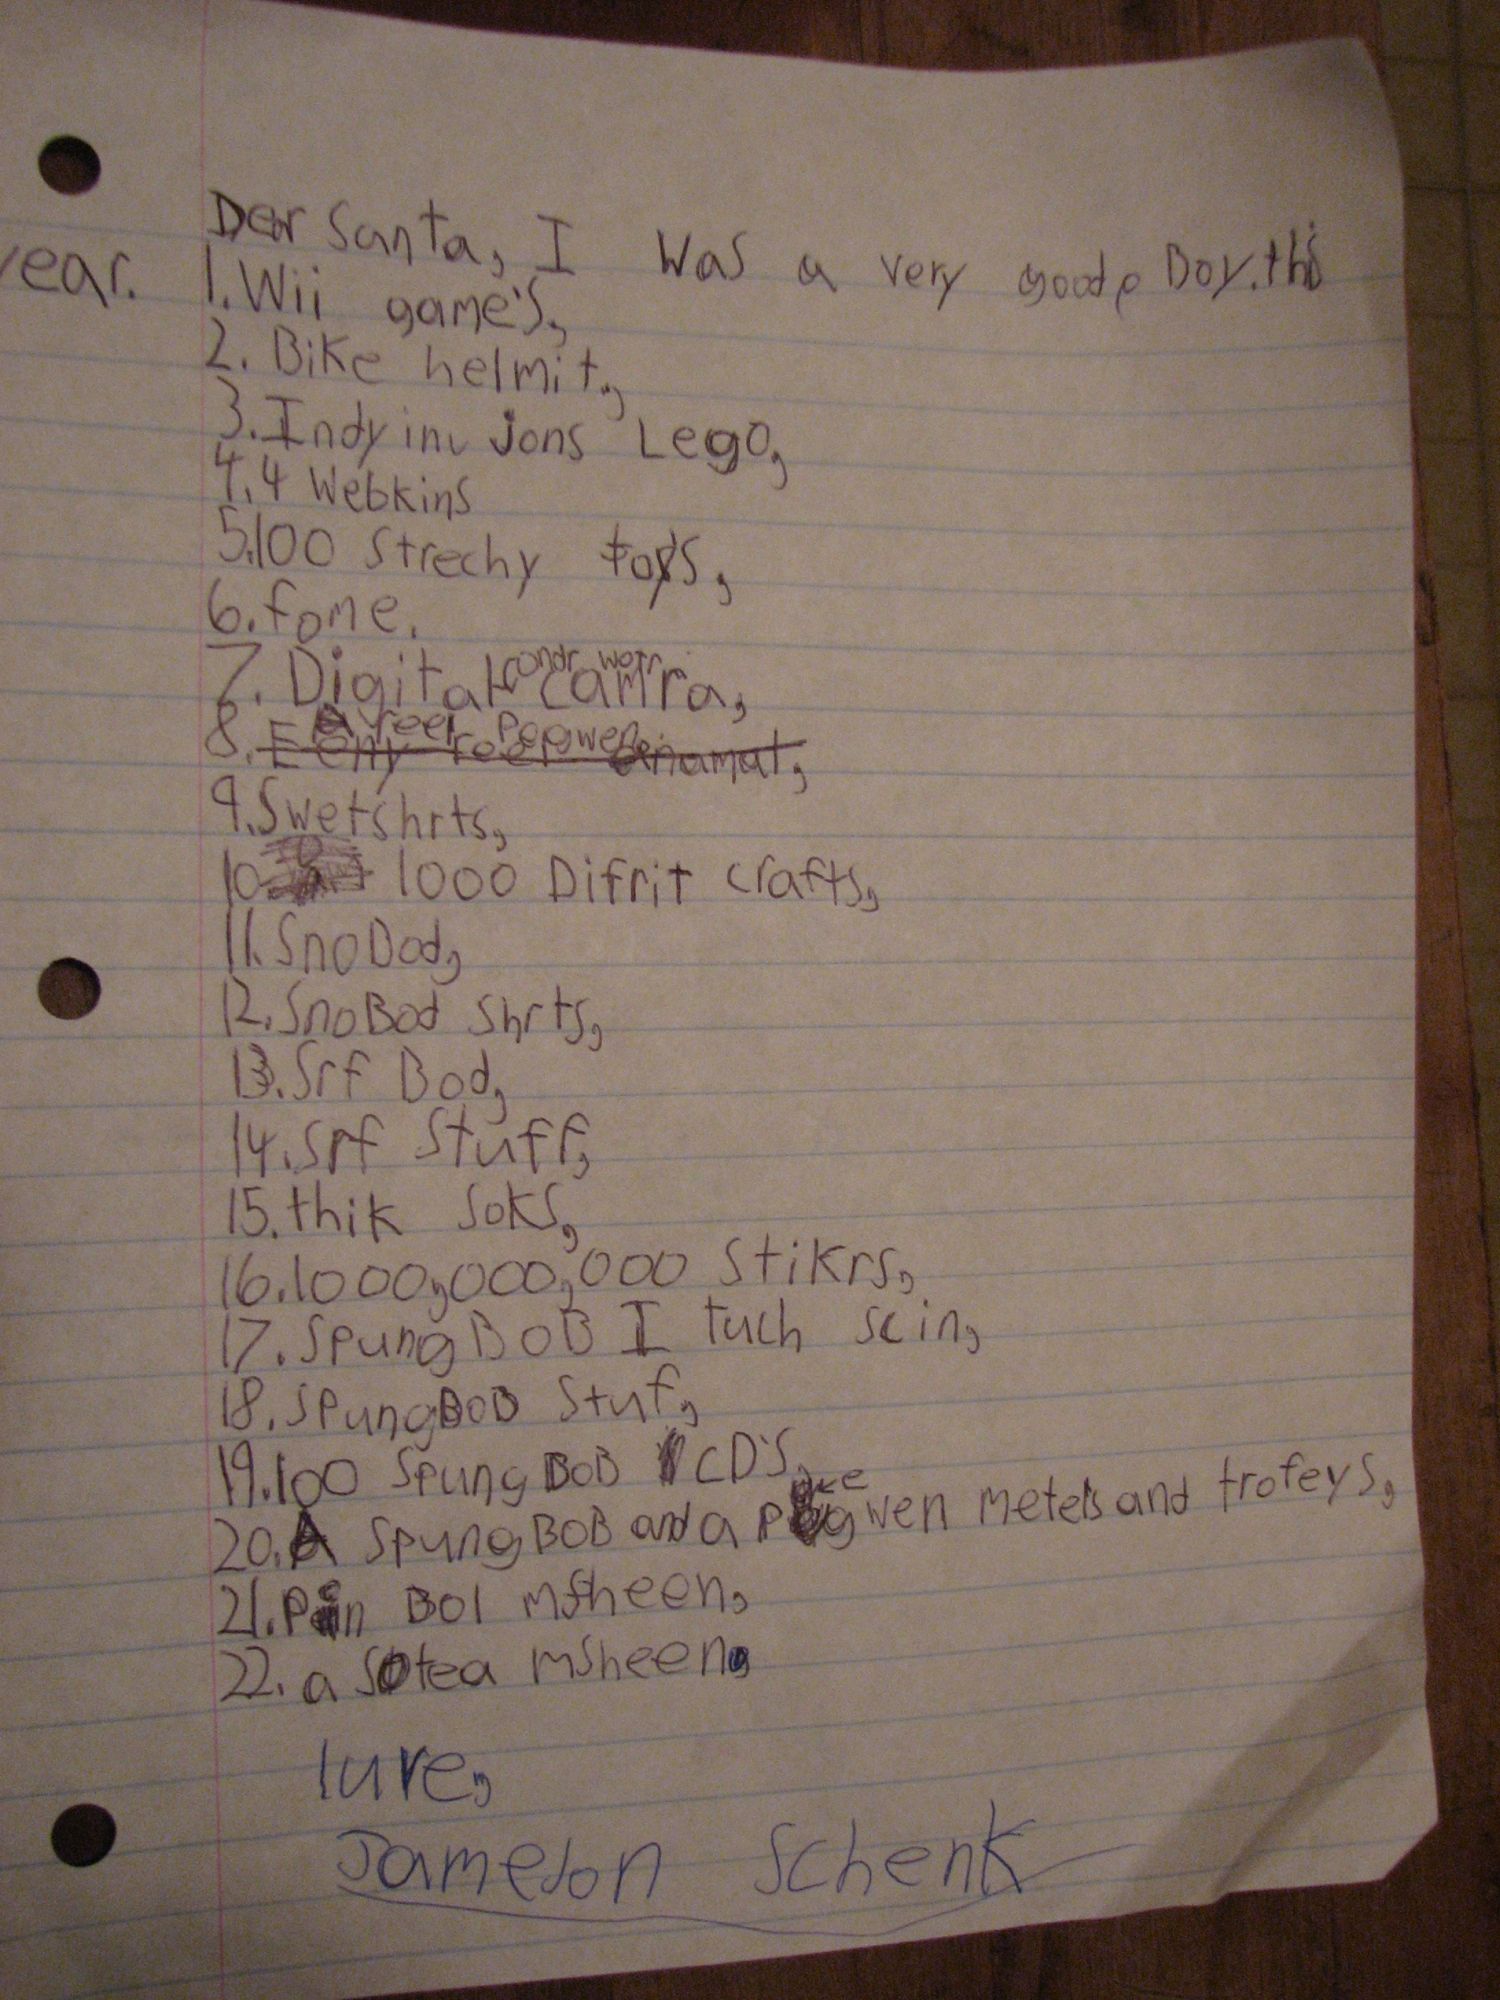 Dear Santa, I was a very good Boy. this
year.
1. Wii game's,
2. Bike helmit,
3. Indyinu Jons Lego,
4. 4 Webkins
5. 100 Strechy toys,
6. fone.
7. Digital ondr wotr camra,
8. A reel pegwen.
9. Swetshrts,
10. 1000 Difrit crafts,
11. SnoBod,
12. SnoBod shrts,
13. Srf Bod,
14. Srf Stuff,
15. thik soks,
16. 1000,000,000 Stikrs,
17. SpungBoB I tuch scin,
18. SpungBoB Stuf,
19. 100 SpungBoB CD's,
20. A SpungBoB and a wen metels and trofeys,
21. Pin Bol msheen,
22. a msheen,
luve,
Jameson Schenk